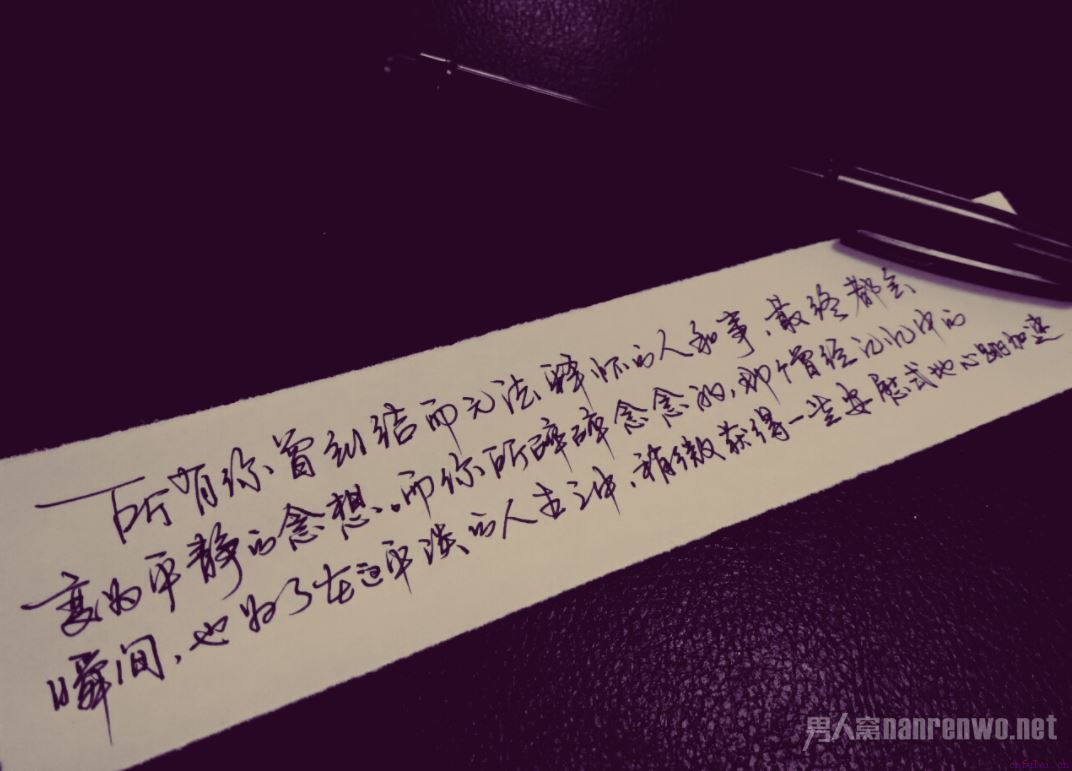 所有你曾纠结而无法释怀的人和事、最终都会
变为平静的念想。而你所碎碎念念的,那个曾经记忆中的
瞬间,也为了在这平淡的人生之中、稍微获得一些安慰式地心跳加速
男人窝nanrenwo.net